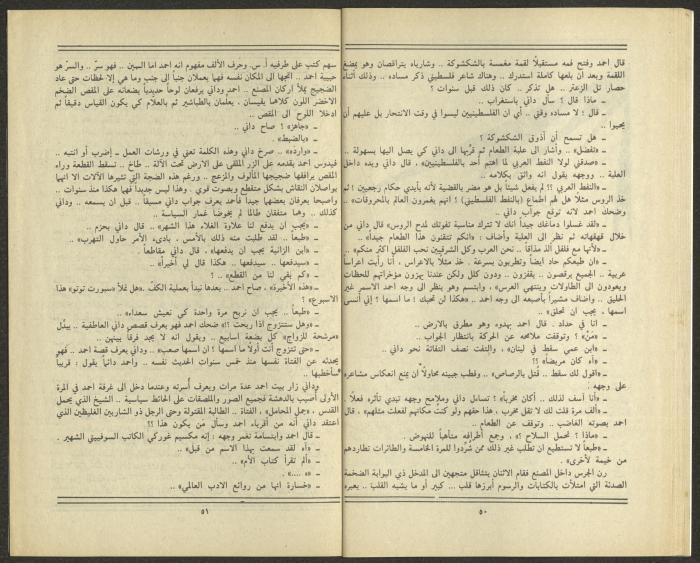 قال احمد وفتح فمه مستقبلاً لقمة مغمسة بالشكشوكة .. وشارباه يتراقصان وهو يمضغ
اللقمة وبعد ان بلعها كاملة استدرك .. وهناك شاعر فلسطيني ذكر مساده .. وذلك أثناء
حصار تل الزعتر .. هل تذكر .. كان ذلك قبل سنوات ؟
ــ ماذا قال ؟ سأل داني باستغراب ..
ــ قال : لا مساده وقتي .. أي ان الفلسطينيين ليسوا في وقت الانتحار بل عليهم أن
يحيوا ..
ــ هل تسمح أن أذوق الشكشوكة ؟
ــ «تفضل» .. وأشار الى علبة الطعام ثم قربها الى داني كي يصل اليها بسهولة ..
ــ «صدقني لولا النفط العربي لما اهتم أحد بالفلسطينيين» ، قال داني ويده داخل
العلبة .. ووجهه يقول انه واثق بكلامه ..
ــ «النفط العربي ؟؟ لم يفعل شيئاً بل هو مضر بالقضية لأنه بأيدي حكام رجعيين ! ثم
خذ الروس مثلا هل لهم اطماع (بالنفط الفلسطيني) ؟ انهم يغمرون العالم بالمحروقات» ..
وضحك احمد لانه توقع جواب داني ..
ــ «لقد غسلوا دماغك جيداً انك لا تترك مناسبة تفوتك لمدح الروس» قال داني من
خلال قهقهاته ثم نظر الى العلبة وأضاف : «انكم تتقنون هذا الطعام جيداً» ..
ــ «لأنها مع فلفل ألذ مذاقا .. نحن العرب وكل الشرقيين نحب الفلفل اكثر منكم» ..
ــ «ان طبعكم حاد ايضاً وتطربون بسرعة . خذ مثلا بالاعراس ، أنا رأيت اعراساً
عربية .. الجميع يرقصون .. يقفزون .. ودون كلل ولكن عندنا يهزون مؤخراتهم للحظات
ويعودون الى الطاولات وينتهي العرس» ، وابتسم وهو ينظر الى وجه احمد الاسمر غير
الحليق .. وأضاف مشيراً بأصبعه الى وجه احمد .. «هكذا لن تحبك ! ما اسمها ؟ إني أنسى
اسمها ، يجب ان تحلق» ..
ــ انا في حداد . قال احمد بهدوء وهو مطرق بالارض ..
ــ «مَنْ» ؟ وتوقفت ملامحه عن الحركة بانتظار الجواب ..
ــ «ابن عمي سقط في لبنان» ، والتفت نصف التفاتة نحو داني ..
ــ «آه كان مريضاً» ؟؟
ــ «اقول لك سقط .. قتل بالرصاص» .. وقطب جبينه محاولاً ان يمنع انعكاس مشاعره
على وجهه .
ــ «أنا آسف لذلك .. أكان مخرباً» ؟ تساءل داني وملامح وجهه تبدي تأثره فعلاً ..
ــ «ألف مرة قلت لك لا تقل مخرب ، هذا حقهم ولو كنت مكانهم لفعلت مثلهم» ، قال
احمد بصوته الغاضب .. وتوقف عن الطعام ..
ــ «ماذا ؟ تحمل السلاح ؟» ، وجمع أطرافه متأهباً للنهوض .
ــ «طبعاً لا تستطيع ان تطلب غير ذلك ممن شُردوا للمرة الخامسة والطائرات تطاردهم
من خيمة لأخرى» .
رن الجرس داخل المصنع فقام الاثنان يتثاقل متجهين الى المدخل ذي البوابة الضخمة
الصدئة التي امتلأت بالكتابات والرسوم أبرزها قلب ... كبير أو ما يشبه القلب .. يعبره
٥٠
سهم كتب على طرفيه أ. س. وحرف الألف مفهوم انه احمد اما السين .. فهو سرّ .. والسر هو
حبيبة احمد .. اتجها الى المكان نفسه فهما يعملان جنباً إلى جنب وما هي إلا لحظات حتى عاد
الضجيج يملأ اركان المصنع .. احمد وداني يرفعان لوحاً حديدياً يضعانه على المقص الضخم
الاخضر اللون كلاهما يقيسان ، يعلمان بالطباشير ثم بالعلام كي يكون القياس دقيقاً ثم
ادخلا اللوح الى المقص ..
ــ «جاهز» ؟ صاح داني ..
ــ «بالضبط» .
ــ «واردة» .. صرخ داني وهذه الكلمة تعني في ورشات العمل ــ إضرب أو انتبه ..
فيدوس احمد بقدمه على الزر الملقى على الارض تحت الآلة .. طاخ .. تسقط القطعة وراء
المقص يرافقها ضجيجها المألوف والمزعج .. ورغم هذه الضجة التي تثيرها الآلات الا انهما
يواصلان النقاش بشكل متقطع وبصوت قوي . وهذا ليس جديداً فهما هكذا منذ سنوات ..
واصبحا يعرفان بعضهما جيداً فأحمد يعرف جواب داني مسبقاً .. قبل ان يسمعه .. وداني
كذلك .. وهما متفقان طالما لم يخوضا غمار السياسة ..
ــ «يجب ان يدفع لنا علاوة الغلاء هذا الشهر» .. قال داني بحزم ..
ــ «طبعاً .. لقد طلبت منه ذلك بالأمس ، بادىء الأمر حاول التهرب» ..
ــ «ابن الزانية يجب ان يدفعها» ، قال داني مقاطعاً ..
ــ «سيدفعها . سيدفعها .. هكذا قال لي أخيراً» ..
ــ «كم بقي لنا من القطع» .. ؟
ــ «هذه الأخيرة» ، صاح احمد .. بعدها نبدأ بعملية الكف .. «هل تملأ «سبورت توتو» هذا
الاسبوع» ؟
ــ «طبعاً .. يجب ان نربح مرة واحدة كي نعيش سعداء» ..
ــ «وهل ستتزوج اذا ربحت ؟» ضحك احمد فهو يعرف قصص داني العاطفية .. يبدّل
«مرشحة للزواج» كل بضعة اسابيع .. ويقول انه لا يجد فرقا بينهن ..
ــ «حتى تتزوج أنت أولاً ما اسمها ؟ ان اسمها صعب» .. وداني يعرف قصة احمد .. فهو
يحدثه عن الفتاة نفسها منذ خمس سنوات الحديث نفسه .. واحمد دائماً يقول : قريباً
«سأخطبها ..
وداني زار بيت احمد عدة مرات ويعرف أسرته وعندما دخل الى غرفة احمد في المرة
الأولى أصيب بالدهشة فجميع الصور والملصقات على الحائط سياسية .. الشيخ الذي يحمل
القدس ، «جمل المحامل» ، الفتاة .. الطالبة المقتولة وحتى الرجل ذو الشاربين الغليظين الذي
اعتقد داني أنه من أقرباء احمد وسأل من يكون هذا ؟؟
ــ قال احمد وابتسامة تغمر وجهه : إنه مكسيم غوركي الكاتب السوفييتي الشهير .
ــ «آه لقد سمعت بهذا الاسم من قبل» ..
ــ «ألم تقرأ كتاب الأم» ..
ــ «.....» ..
ــ «خسارة انها من روائع الادب العالمي» ..
٥١